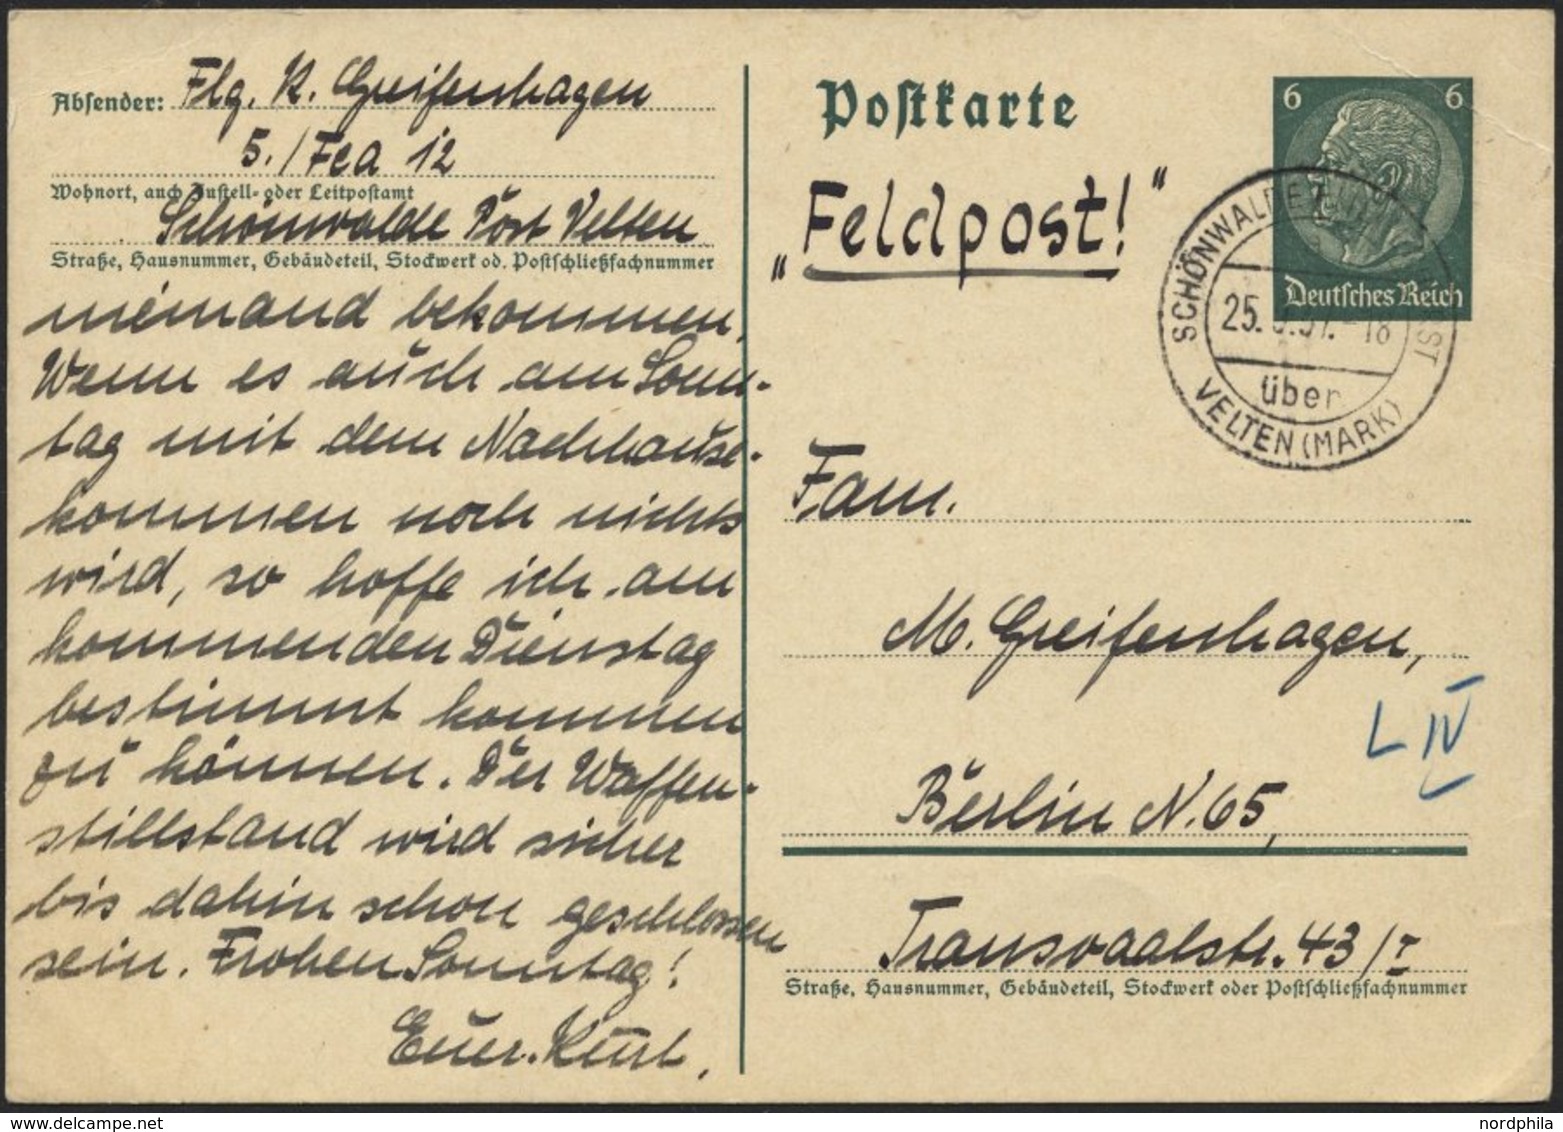 Absender: Flg. K. Greifenhagen
5./Fea 12
Wohnort, auch Zustell- oder Leitpostamt
Schönwalde Post Velten
Straße, Hausnummer, Gebäudeteil, Stockwerk od. Postschließfachnummer
niemand bekommen.
Wenn es auch am Sonn-
tag mit dem Nachhause-
kommen noch nichts
wird, so hoffe ich am
kommenden Dienstag
bestimmt kommen
zu können. Der Waffen-
stillstand wird sicher
bis dahin schon geschlossen
sein. Frohen Sonntag!
Euer Kurt.
Postkarte
6 6
Deutsches Reich
„Feldpost!“
SCHÖNWALDE
25. -18
über
VELTEN (MARK)
Fam.
M. Greifenhagen,
L IV
Berlin N. 65,
Transvaalstr. 43/I
Straße, Hausnummer, Gebäudeteil, Stockwerk oder Postschließfachnummer
nordphila